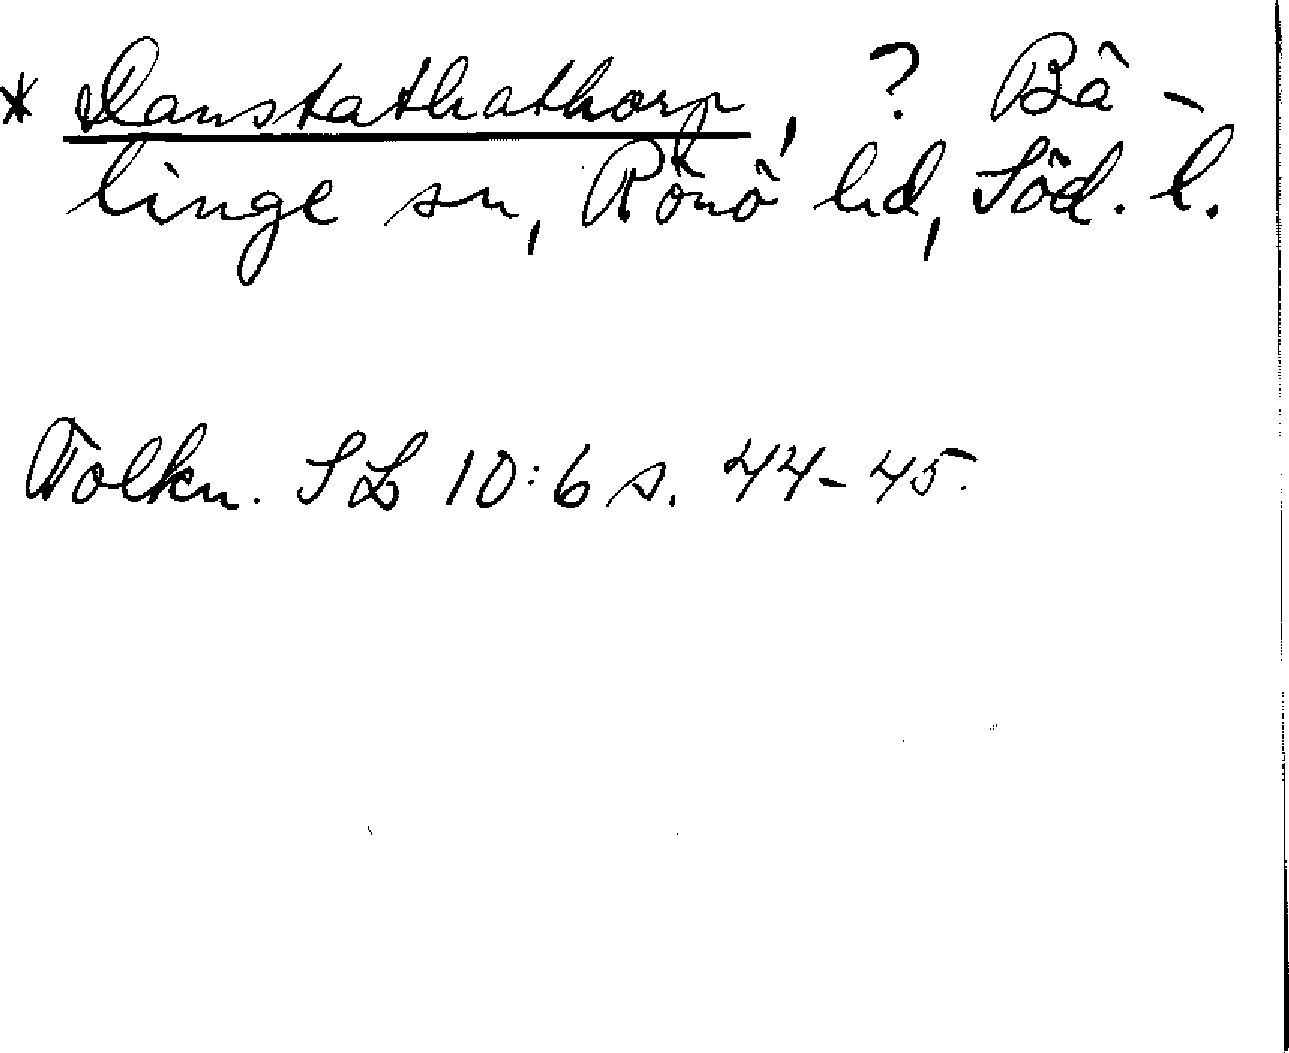 * Danstathathorp, ? Bä-
linge sn, Rönö hd, Söd. l.
Tolkn. SL 10:6 s. 44-45.